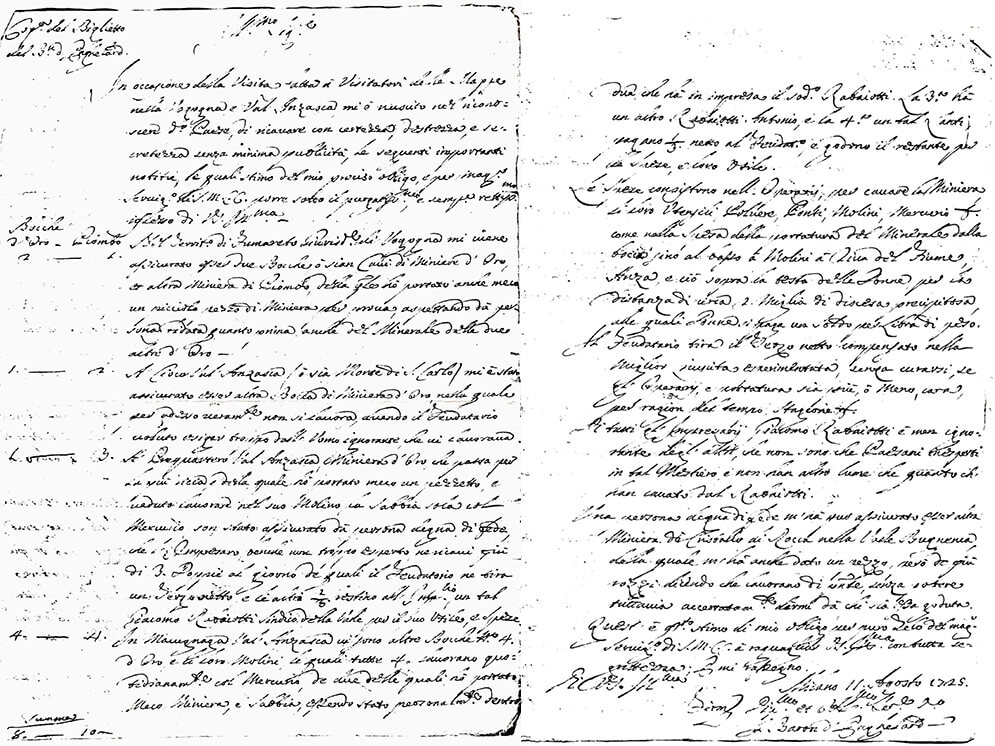 Copᵃ del Biglietto
del Bᵒⁿ d'Engelard.
Illᵐᵒ
In occasione della Visita fatta à Visitatori delle Mappe
nella Vogogna e Val Anzasca mi è riuscito nel
Paese, di ricavare con certezza, destrezza, e se-
cretezza senza minima publicità, le seguenti importanti
notitie, le quali stimo del mio preciso obligo, e per magᵍ
Servigᵒ di S.M.C.C. porre sotto il purgatisᵐᵒ e sempʳ rettissᵐᵒ
riflesso di V. S. Illᵐᵃ
Boche
d'Oro — Piombo
2 — 1.
Nel Territᵒ di Fumareto Giurisdᵉ di Vogogna mi viene
assicurato esser due Boche ò sian Cavi di Miniere d'Oro,
et altra Miniera di Piombo della qˡᵉ hò portato anche meco
un picciolo pezzo di Miniera per prova aspettando dà per-
sona fidata quanto prima anche del Minerale delle due
altre d'Oro —
1. — 2.
A Cioco Val Anzasca / ò sia Monte di S. Carlo / mi è stato
assicurato esser altra Bocha di Miniera d'Oro, nella quale
per adesso veramᵗᵉ non si lavora, avendo il Feudatario
voluto esiger troppo dall'Uomo ignorante che vi lavorava.
1. — 3.
A Val Anzasca Miniera d'Oro che passa per
la più ricca, della quale hò portato meco un pezzetto, e
veduto lavorare nel suo Molino, la sabbia sola col
Mercurio son stato assicurato dà persona degna di fede,
che l'Impresaro benche non troppo esperto ne ricavi più
di 3. Doppie al giorno de quali il Feudatario ne tira
un Terzo netto e li altri ⅔ restino all'Impᵃʳⁱᵒ un tal
Giacomo Rabaiotti Sindico della Valle per il suo Utile, e spese.
4. — 4.
In Macugnaga Val Anzasca vi sono altre Boche Nᵒ 4.
d'Oro e li loro Molini le quali tutte 4. lavorano quo-
tidianamᵗᵉ col Mercurio, de due delle quali hò portato
Meco Miniera, e Sabbia, essendo stato personalmᵗᵉ dentro
Summa
8. — 10 —
due, che hà in impresa il sodᵒ Rabaiotti. La 3ᵃ hà
un altro Rabaiotti Antonio, e la 4ᵃ un tal Lanti,
pagano ⅓ netto al Feudatᵒ e godono il restante per
le spese, e loro Utile.
Le Spese consistono nell'Operarij, per cavare la Miniera
li loro Utensili Polvere, Ponti, Molini, Mercurio
come nella Spesa della portatura del Minerale dalla
bocca sino al basso à Molini à Riva del Fiume
Anza, e ciò sopra la testa delle Donne, per la
distanza di circa 2. Miglia di discesa precipitosa
alle quali Donne si paga un soldo per Libra di peso.
Il Feudatario tira il Terzo netto compensato nella
Miglior riuscita esperimentata, senza curarsi, se
gl'Operarij, e portatura sia più, ò meno, cara,
per ragion del tempo, Stagione
Di tutti gl'Impresarij Giacomo Rabaiotti è men igno-
rante degl'altri, che non sono che Paesani inesperti
in tal Mestiero è non han altro lume che quanto ch'
han cavato dal Rabaiotti.
Una persona degna di fede m'hà pur assicurato esser altra
Miniera di Cristallo al Rocca nella Valle Bugnenca,
della quale m'hà anche dato un pezzo, però de più
rozzi dicendo che lavorano di bande, senza potere
tuttavia accertatamᵗᵉ dirmi dà chi sia
Quest' è qᵗᵒ stimo di mio obligo per puro zelo del magᵍ
Servigᵒ di S.M.C.C. à raguagliar V. S. Illᵐᵃ con tutta se-
gretezza; E mi rassegno.
Di V. S. Illᵐᵃ
Milano 11. Agosto 1725.
Divᵐᵒ et Obligᵐᵒ Serᵉ
Il Baron d'Engelard —